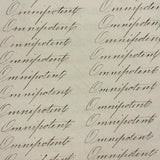 Omnipotent Omnipotent
Omnipotent Omnipotent
Omnipotent Omnipotent
Omnipotent Omnipotent
Omnipotent Omnipotent
Omnipotent Omnipotent
Omnipotent Omnipotent
Omnipotent Omnipotent
Omnipotent Omnipotent